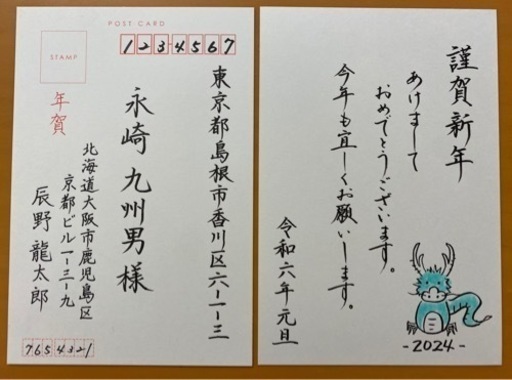 POST CARD
STAMP
1234567
年賀
東京都島根市香川区六-一-三
永崎九州男様
北海道大阪市鹿児島区
京都ビル一-三-九
辰野龍太郎
7654321
謹賀新年
あけまして
おめでとうございます。
今年も宜しくお願いします。
令和六年元旦
-2024-